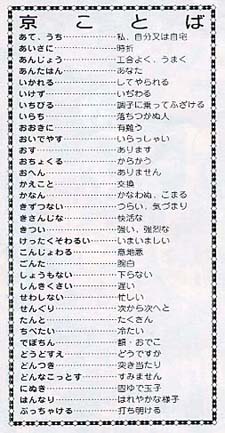 京ことば
あて、うち…………私、自分又は自宅
あいさに…………時折
あんじょう…………工合よく、うまく
あんたはん…………あなた
いかれる…………してやられる
いけず…………いぢわる
いちびる…………調子に乗ってふざける
いらち…………落ちつかぬ人
おおきに…………有難う
おいでやす…………いらっしゃい
おす…………あります
おちょくる…………からかう
おへん…………ありません
かえこと…………交換
かなん…………かなわぬ、こまる
きずつない…………つらい、気づまり
きさんじな…………快活な
きつい…………強い、強烈な
けったくそわるい…………いまいましい
こんじょわる…………意地悪
ごんた…………腕白
しょうもない…………下らない
しんきくさい…………遅い
せわしない…………忙しい
せんぐり…………次から次へと
たんと…………たくさん
ちべたい…………冷たい
でぼちん…………額・おでこ
どうどすえ…………どうですか
どんつき…………突き当たり
どんなこっとす…………すみません
にぬき…………固ゆで玉子
はんなり…………はれやかな様子
ぶっちゃける…………打ち明ける